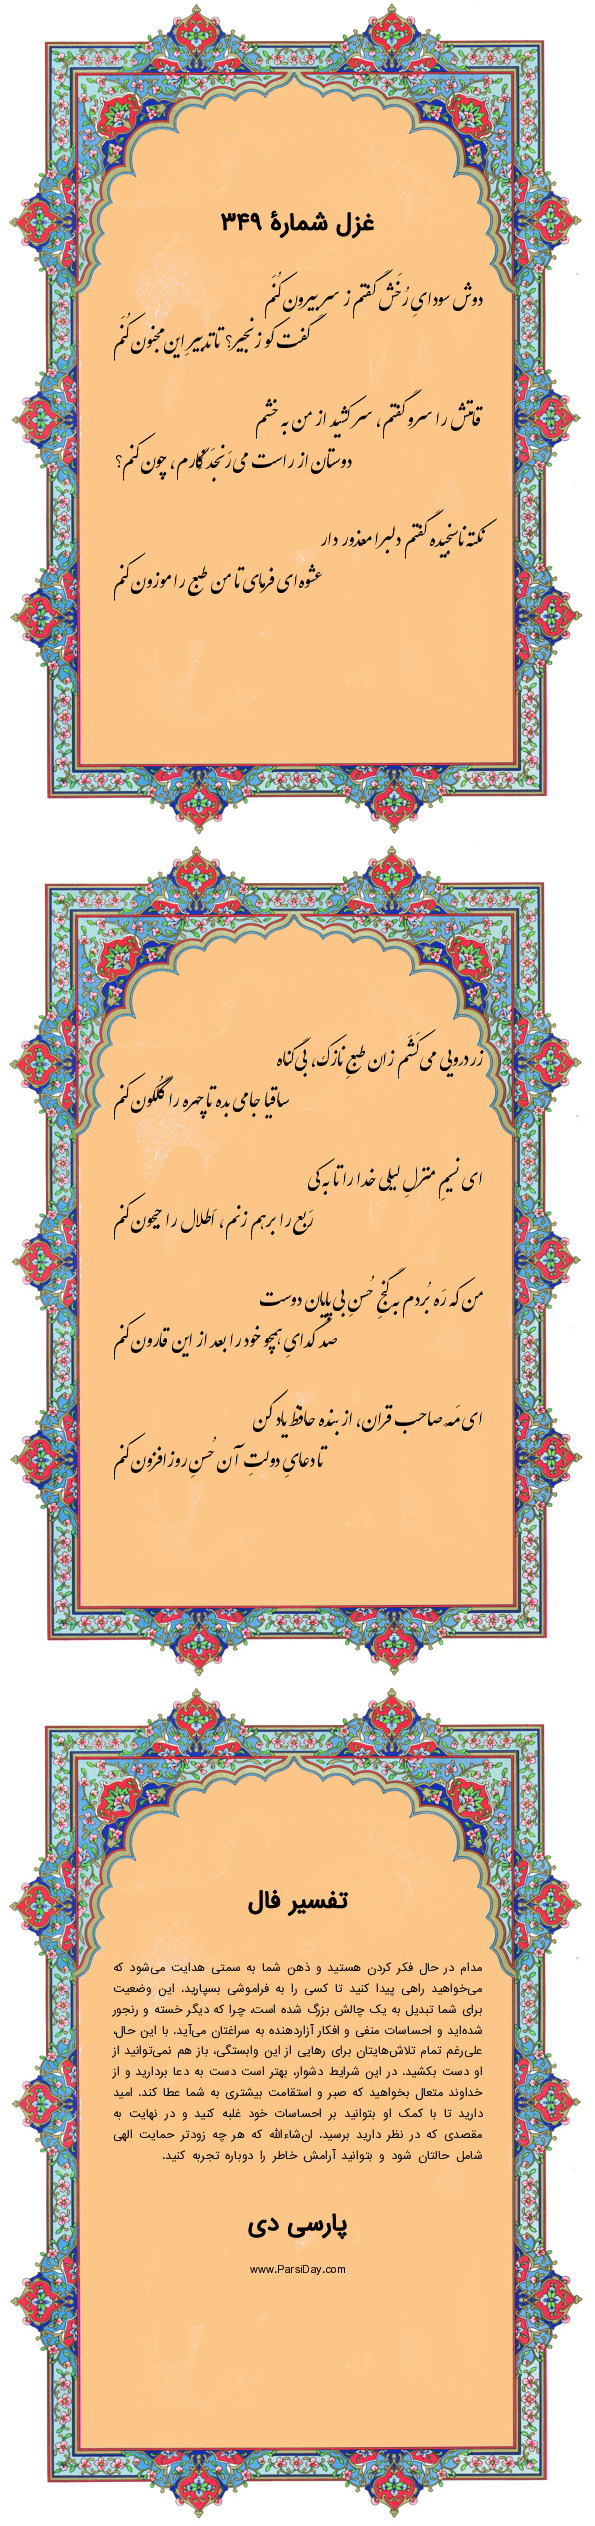 غزل شمارهٔ ۳۴۹
دوش سودایِ رُخَش گفتم ز سر بیرون کُنَم
گفت کو زنجیر؟ تا تدبیرِ این مجنون کُنَم
قامتش را سرو گفتم، سر کشید از من به خشم
دوستان از راست می‌رَنجَد نگارم، چون کنم؟
نکته ناسنجیده گفتم دلبرا معذور دار
عشوه‌ای فرمای تا من طبع را موزون کنم
زردرویی می‌کَشَم زان طبعِ نازک، بی‌گناه
ساقیا جامی بده تا چهره را گُلگون کنم
ای نسیمِ منزلِ لیلی خدا را تا به کی
رَبع را برهم زنم، اَطلال را جیحون کنم
من که رَه بُردم به گنجِ حُسنِ بی‌پایانِ دوست
صد گدایِ همچو خود را بعد از این قارون کنم
ای مَهِ صاحب قران، از بنده حافظ یاد کن
تا دعایِ دولتِ آن حُسنِ روز افزون کنم
تفسیر فال
مدام در حال فکر کردن هستید و ذهن شما به سمتی هدایت می‌شود که
می‌خواهید راهی پیدا کنید تا کسی را به فراموشی بسپارید. این وضعیت
برای شما تبدیل به یک چالش بزرگ شده است، چرا که دیگر خسته و رنجور
شده‌اید و احساسات منفی و افکار آزاردهنده به سراغتان می‌آید. با این حال،
علی‌رغم تمام تلاش‌هایتان برای رهایی از این وابستگی، باز هم نمی‌توانید از
او دست بکشید. در این شرایط دشوار، بهتر است دست به دعا بردارید و از
خداوند متعال بخواهید که صبر و استقامت بیشتری به شما عطا کند. امید
دارید تا با کمک او بتوانید بر احساسات خود غلبه کنید و در نهایت به
مقصدی که در نظر دارید برسید. ان‌شاءالله که هر چه زودتر حمایت الهی
شامل حالتان شود و بتوانید آرامش خاطر را دوباره تجربه کنید.
پارسی دی
www.ParsiDay.com